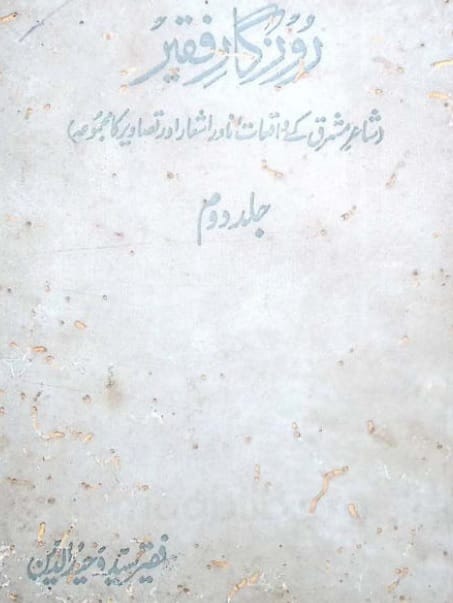 روزگارِ فقیر
(شاعرِ مشرق کے واقعات، نادر اشعار اور تصاویر کا مجموعہ)
جلد دوم
فقیر سید وحید الدین